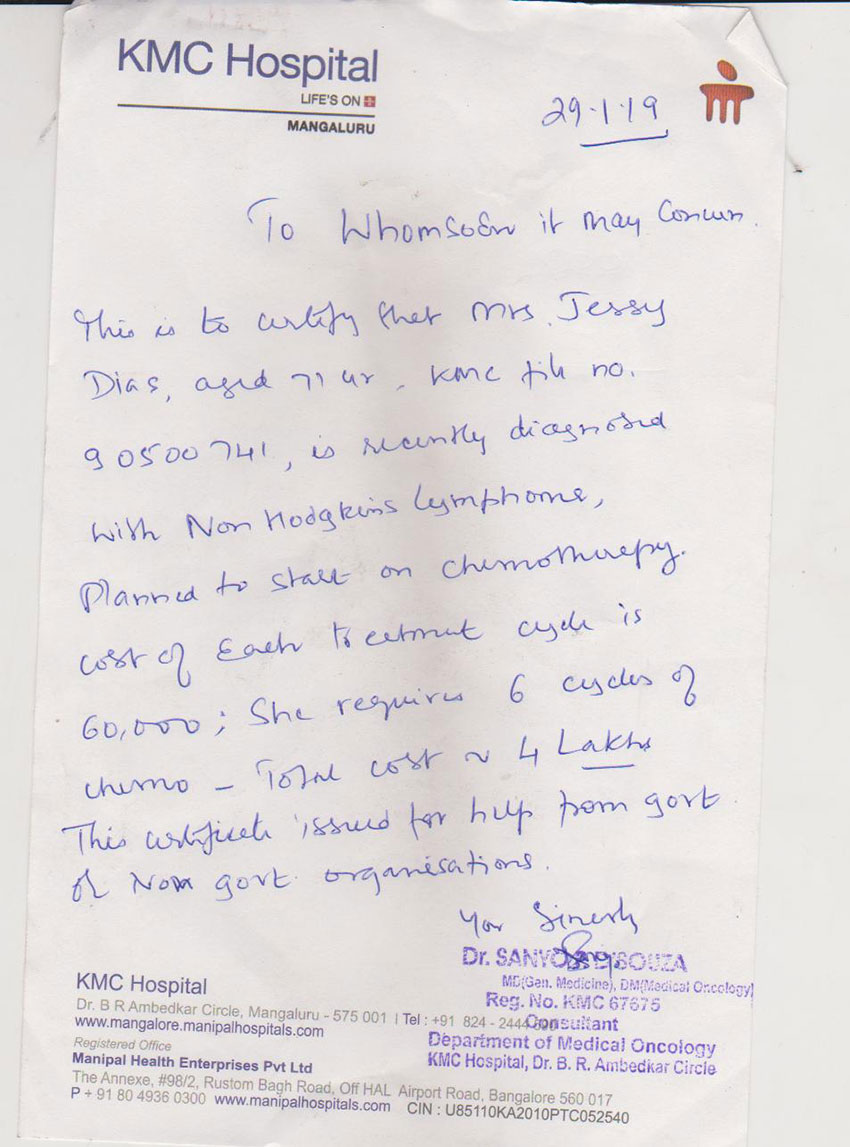 KMC Hospital
LIFE'S ON
MANGALURU
29.1.19
To Whomsoever it may Concern.
This is to certify that Mrs. Jessy
Dias, aged 71 yr, KMC file no.
90500741, is recently diagnosed
with Non Hodgkins lymphoma,
Planned to start on chemotherapy.
cost of Each treatment cycle is
60,000; She requires 6 cycles of
chemo – Total cost ~ 4 Lakhs
This certificate issued for help from govt
or Non govt. organisations.
Your Sincerely
Dr. SANYO D'SOUZA
MD(Gen. Medicine), DM(Medical Oncology)
Reg. No. KMC 67675
Consultant
Department of Medical Oncology
KMC Hospital, Dr. B. R. Ambedkar Circle
KMC Hospital
Dr. B R Ambedkar Circle, Mangaluru - 575 001 I Tel : +91 824 - 2444
www.mangalore.manipalhospitals.com
Registered Office
Manipal Health Enterprises Pvt Ltd
The Annexe, #98/2, Rustom Bagh Road, Off HAL Airport Road, Bangalore 560 017
P + 91 80 4936 0300 www.manipalhospitals.com CIN : U85110KA2010PTC052540